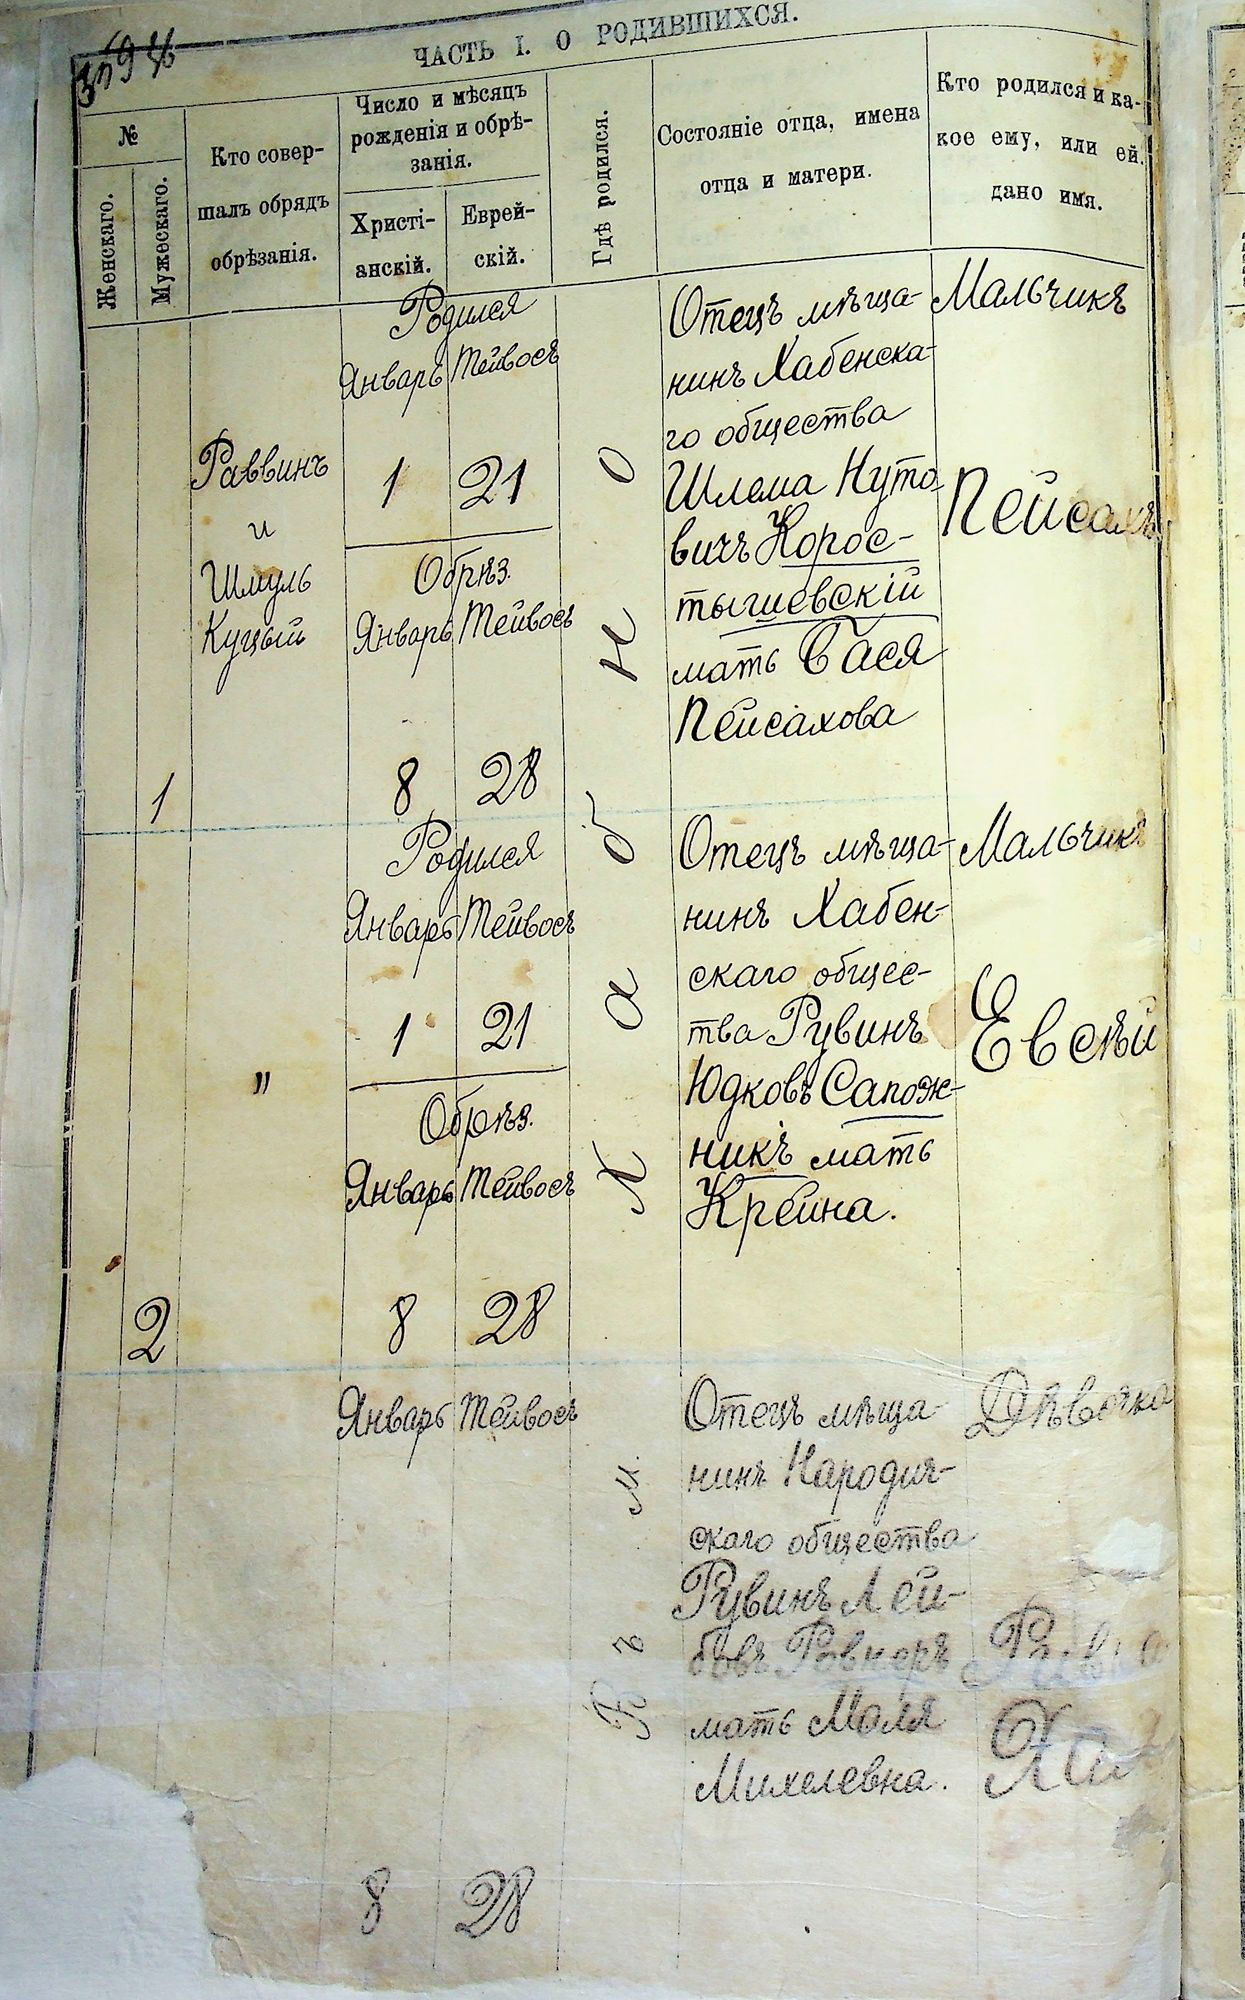 ЧАСТЬ I. О РОДИВШИХСЯ.
№
Женскаго.
Мужескаго.
Кто совер-
шалъ обрядъ
обрѣзанія.
Число и мѣсяцъ
рожденія и обрѣ-
занія.
Христі-
анскій.
Еврей-
скій.
Гдѣ родился.
Состояніе отца, имена
отца и матери.
Кто родился и ка-
кое ему, или ей,
дано имя.
1
Раввинъ
и
Шмуль
Куцый
Родился
Январь Тейвосъ
1 21
Обрѣз.
Январь Тейвосъ
8 28
Въ м. Хабно
Отецъ мѣща-
нинъ Хабенска-
го общества
Шлема Нуто-
вичъ Корос-
тышевскій
мать Бася
Пейсахова
Мальчикъ
Пейсахъ
2
"
Родился
Январь Тейвосъ
1 21
Обрѣз.
Январь Тейвосъ
8 28
Отецъ мѣща-
нинъ Хабен-
скаго общес-
тва Рувинъ
Юдковъ Сапож-
никъ мать
Крейна.
Мальчикъ
Евсѣй
Январь Тейвосъ
8 28
Отецъ мѣща-
нинъ Народич-
скаго общества
Рувинъ Лей-
бовъ Ровнеръ
мать Маля
Михелевна.
Дѣвочка